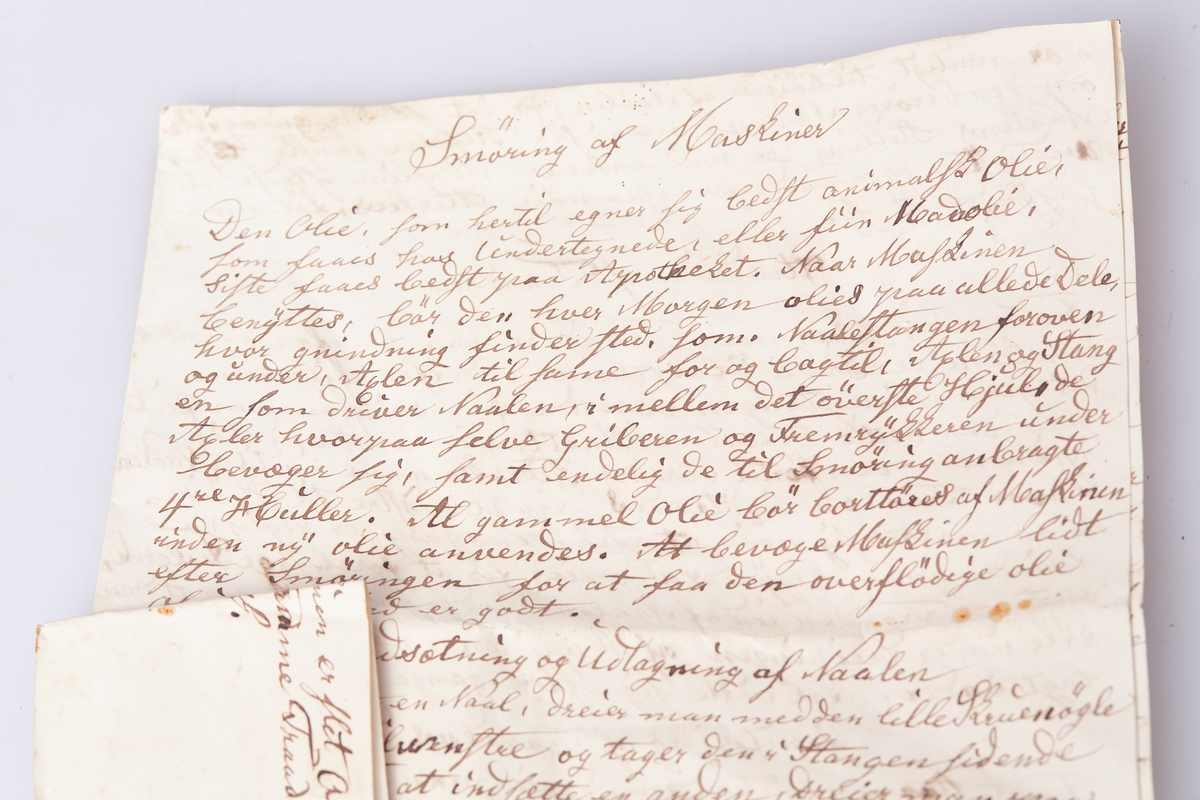 Smöring af Maskiner
Den Olie, som hertil egner sig bedst animalsk Olie,
som faaes hos Undertegnede, eller fiin Madolie,
siste faaes bedst paa Apotheket. Naar Maskinen
benÿttes, bör den hver Morgen olies paa allede Dele,
hvor gnindning finder sted. som. Naalestangen foroven
og under, Axlen til samme for og bagtil, Axlen og Stang
en som driver Naalen, i mellem det överste Hjul, de
Axler hvorpaa selve Griberen og Fremrÿkkeren under
bevæger sig, samt endelig de til Smöring anbragte
4re Huller. Al gammel Olie bör borttöres af Maskinen
inden nÿ olie anvendes. At bevæge Maskinen lidt
efter Smöringen for at faa den overflödige olie
er godt.
dsætning og Udtagning af Naalen
en Naal, dreier man med den lille Skruenögle
venstre og tager den i Stangen sidende
at indsætte en anden, dreier man
nen er slet
Traad